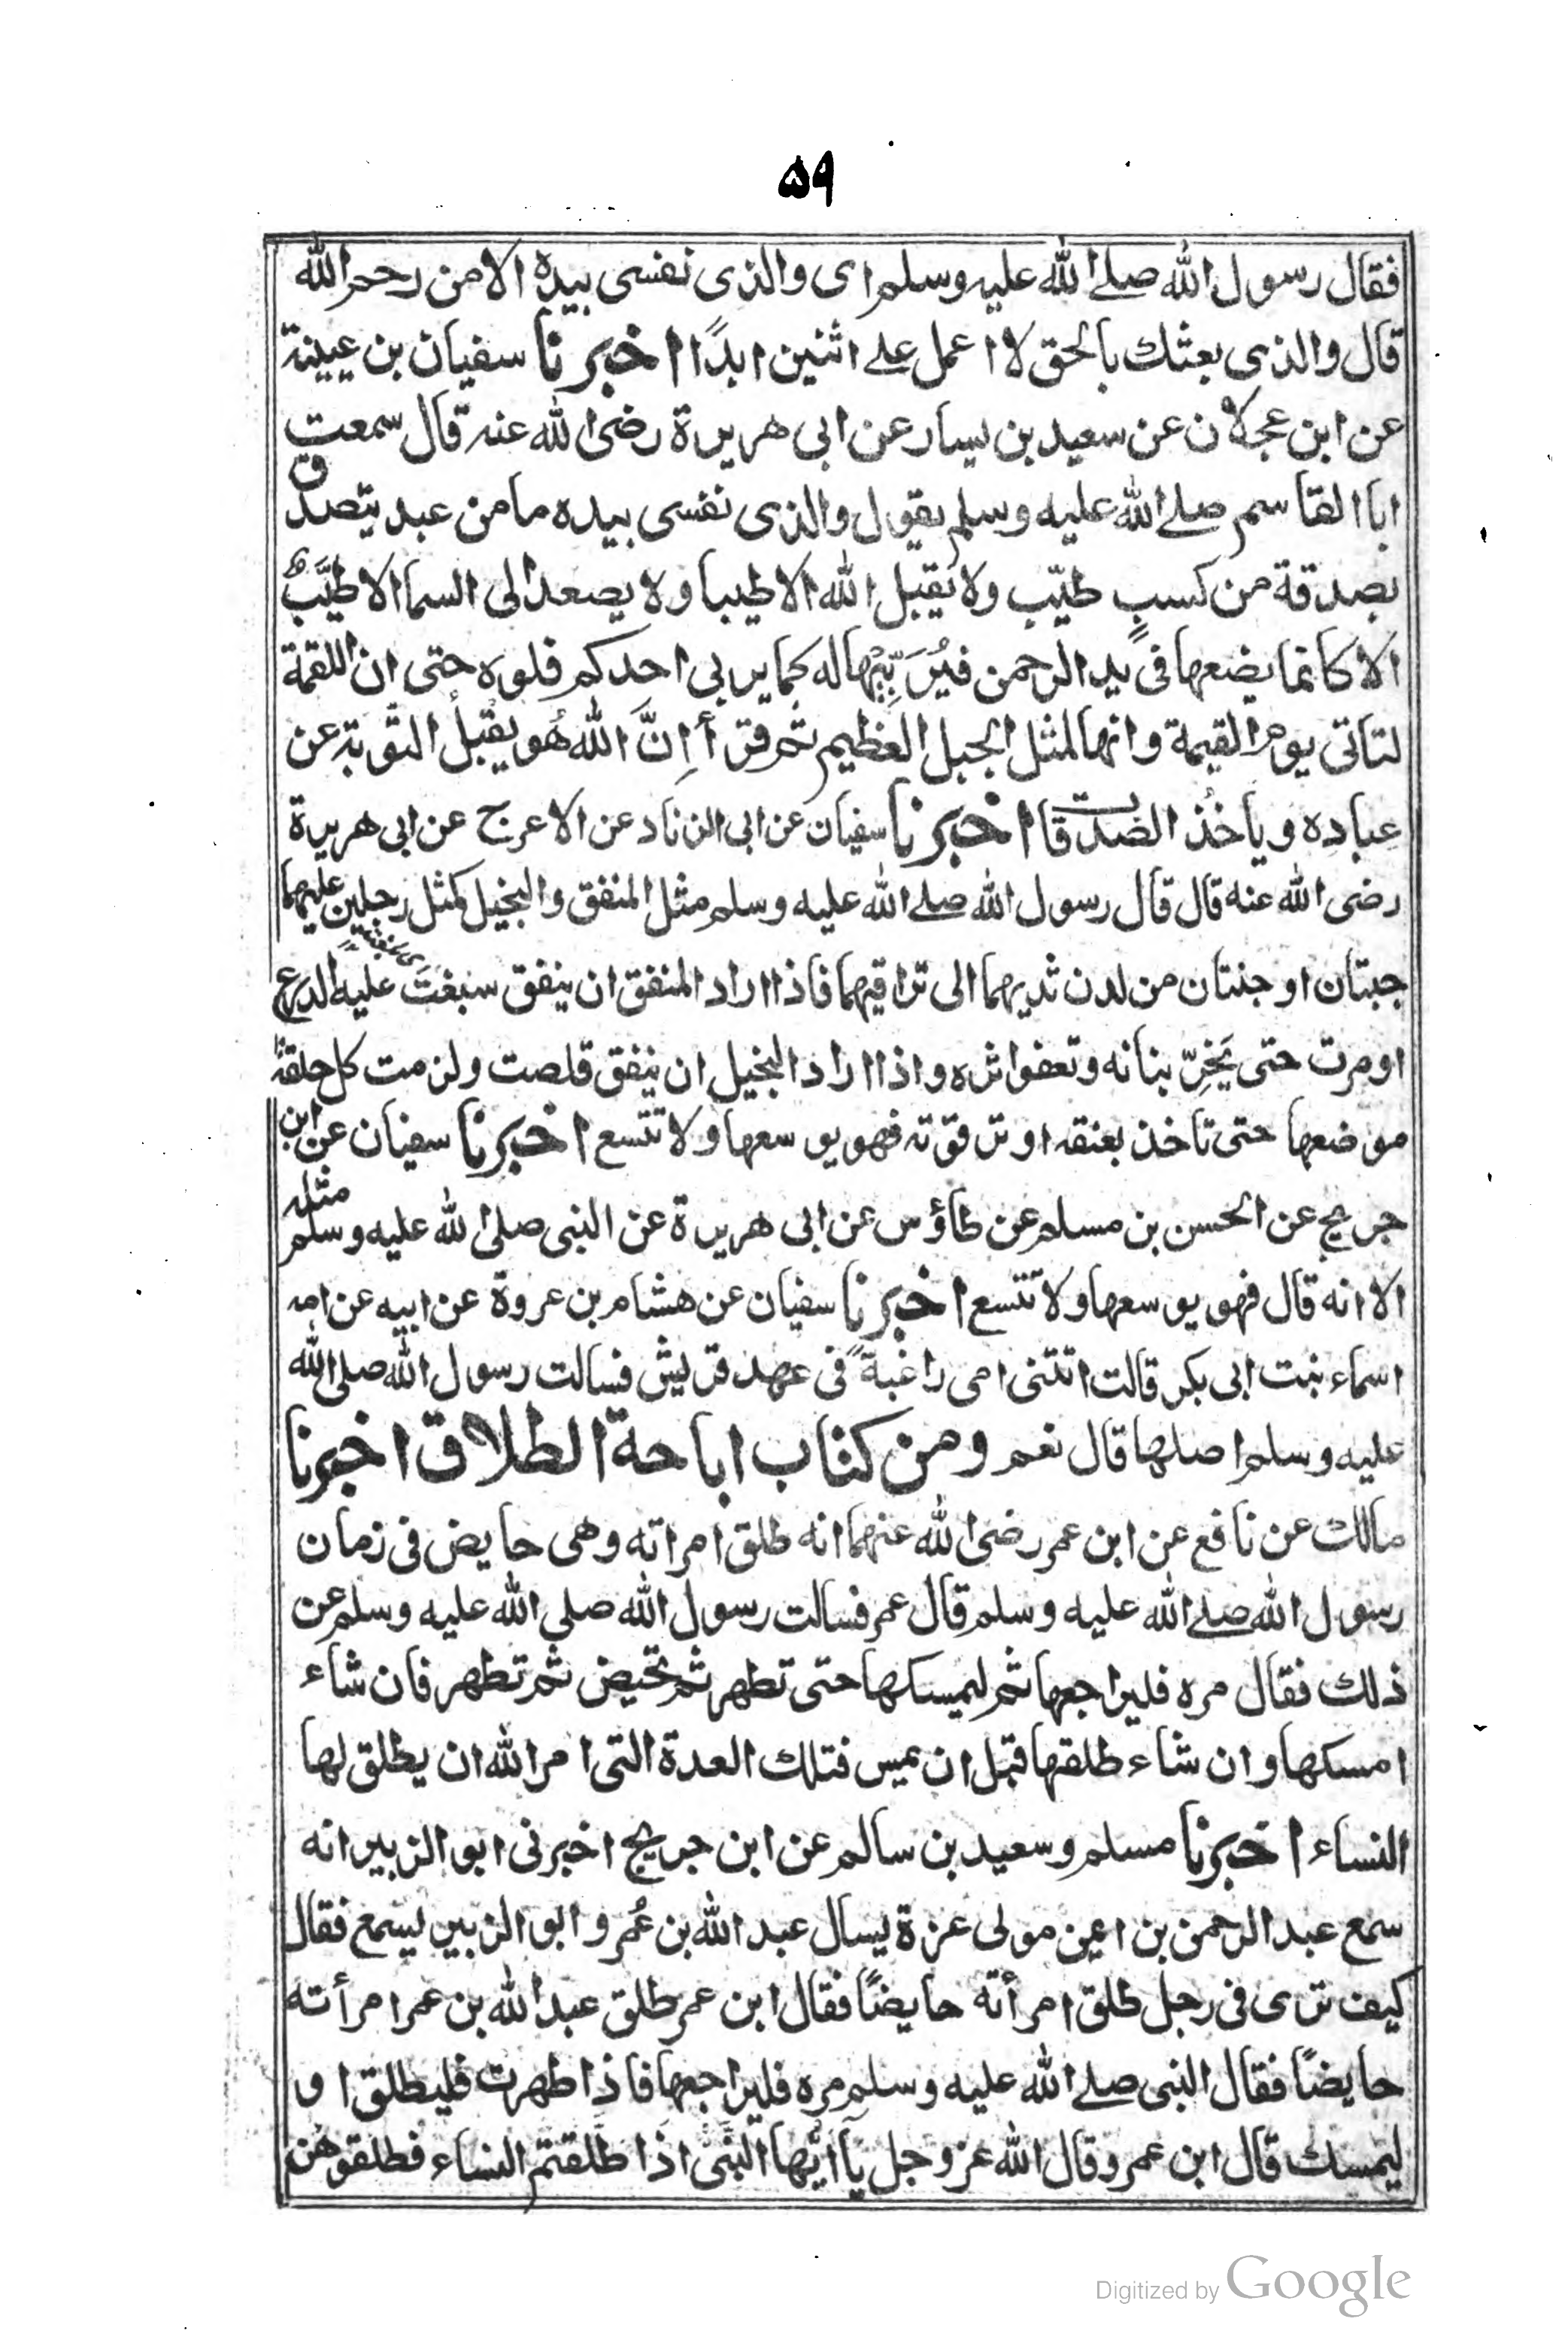 ۵۹
فقال رسول الله صلے الله عليه وسلم اى والذى نفسى بيده الا من رحم الله
قال والذى بعثك بالحق لا اعمل علے اثنين ابدًا اخبرنا سفيان بن عيينة
عن ابن عجلان عن سعيد بن يسار عن ابى هريرة رضى الله عنه قال سمعت
ابا القاسم صلے الله عليه وسلم يقول والذى نفسى بيده ما من عبد يتصدق
بصدقة من كسبٍ طيّب ولا يقبل الله الا طيبا ولا يصعد الى السما الا طيّبٌ
الا كانما يضعها فى يد الرحمن فيُرَبِّيْها له كما يربى احدكم فلوه حتى ان اللقمة
لتاتى يوم القيمة وانها لمثل الجبل العظيم ثم قرأ اِنَّ الله هُو يقْبلُ التوبة عن
عباده و ياخُذ الصّدقات اخبرنا سفيان عن ابى الزناد عن الاعرج عن ابى هريرة
رضى الله عنه قال قال رسول الله صلے الله عليه وسلم مثل المنفق والبخيل كمثل رجلين عليهما
جبتان او جنتان من لدن ثديهما الى تراقيهما فاذا اراد المنفق ان ينفق سبغت عليه الدرع
او مرت حتى يَخِرّ بنانه وتعفوا ثره واذا اراد البخيل ان ينفق قلصت ولزمت كل حلقة
موضعها حتى تاخذ بعنقه او ترقوته فهو يوسعها ولا تتسع اخبرنا سفيان عن ابن
جريج عن الحسن بن مسلم عن طاؤس عن ابى هريرة عن النبى صلى الله عليه وسلم مثله
الا انه قال فهو يوسعها ولا تتسع اخبرنا سفيان عن هشام بن عروة عن ابيه عن امه
اسماء بنت ابى بكر قالت اتتنى امى راغبةً فى عهد قريش فسالت رسول الله صلى الله
عليه وسلم اصلها قال نعم ومن كتاب اباحة الطلاق اخبرنا
مالك عن نافع عن ابن عمر رضى الله عنهما انه طلق امراته وهى حايض فى زمان
رسول الله صلے الله عليه وسلم قال عمر فسالت رسول الله صلى الله عليه وسلم عن
ذلك فقال مره فليراجعها ثم ليمسكها حتى تطهر ثم تحيض ثم تطهر فان شاء
امسكها وان شاء طلقها قبل ان يمس فتلك العدة التى امر الله ان يطلق لها
النساء اخبرنا مسلم وسعيد بن سالم عن ابن جريج اخبرنى ابو الزبير انه
سمع عبد الرحمن بن اعين مولى عزة يسال عبد الله بن عُمر و ابو الزبير يسمع فقال
كيف ترى فى رجل طلق امرأته حايضًا فقال ابن عمر طلق عبد الله بن عمر امرأته
حايضًا فقال النبى صلے الله عليه وسلم مره فليراجعها فاذا طهرت فليطلق او
ليمسك قال ابن عمر وقال الله عز وجل يآ ايُّها النَّبىّ اذا طَلّقتم النساء فطلقوهن
Digitized by Google